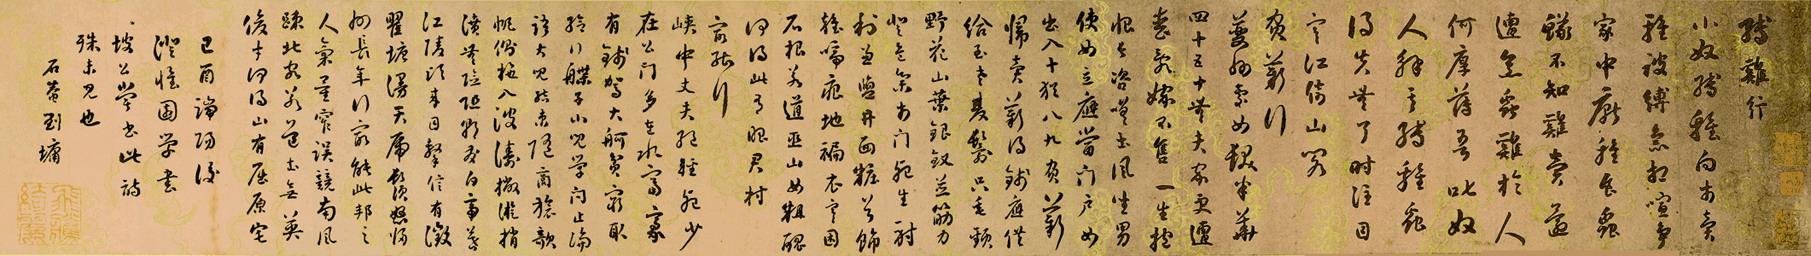 縛雞行
小奴縛雞向市賣
雞被縛急相喧爭
家中厭雞食蟲
蟻不知雞賣還
遭烹蟲雞於人
何厚薄吾叱奴
人解其縛雞蟲
得失無了時注目
寒江倚山閣
負薪行
夔州處女髮半華
四十五十無夫家更遭
喪亂嫁不售一生抱
恨長咨嗟土風坐男
使女立應當門戶女
出入十猶八九負薪
歸賣薪得錢應供
給至老雙鬟只垂頸
野花山葉銀釵並筋力
登危集市門死生射
利兼鹽井面粧首飾
雜啼痕地褊衣寒困
石根若道巫山女粗醜
何得此有昭君村
最能行
峽中丈夫絕輕死少
在公門多在水富豪
有錢駕大舸貧窮取
給行艓子小兒學問止論
語大兒結束隨商旅欹
帆側柂入波濤撇漩捎
濆無險阻朝發白帝暮
江陵頃來目擊信有徵
瞿塘漫天虎鬚怒歸
州長年行最能此邦之
人氣量窄誤競南風
疎北客若道土無英
俊才何得山有屈原宅
己酉端陽後
澄懷園學書
坡公嘗書此詩
殊未見也
石菴劉墉